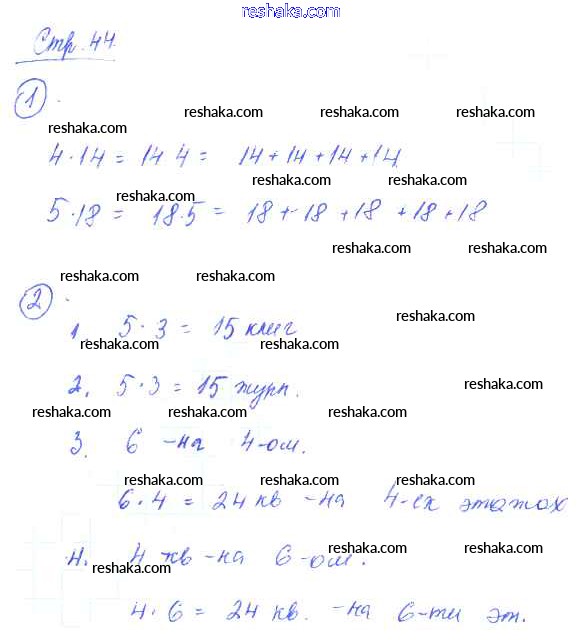 reshaka.com
Стр. 44.
1.
reshaka.com reshaka.com reshaka.com
reshaka.com
4 · 14 = 14 4 = 14 + 14 + 14 + 14
reshaka.com reshaka.com
reshaka.com
5 · 18 = 18 · 5 = 18 + 18 + 18 + 18 + 18
reshaka.com reshaka.com
reshaka.com reshaka.com
2.
reshaka.com
1. 5 · 3 = 15 книг
reshaka.com reshaka.com
reshaka.com
2. 5 · 3 = 15 журн.
reshaka.com reshaka.com reshaka.com reshaka.com
3. 6 - на 4-ом.
reshaka.com reshaka.com reshaka.com
6 · 4 = 24 кв - на 4-ех этажах
reshaka.com reshaka.com
4. 4 кв - на 6-ом.
reshaka.com
4 · 6 = 24 кв. - на 6-ти эт.
reshaka.com reshaka.com